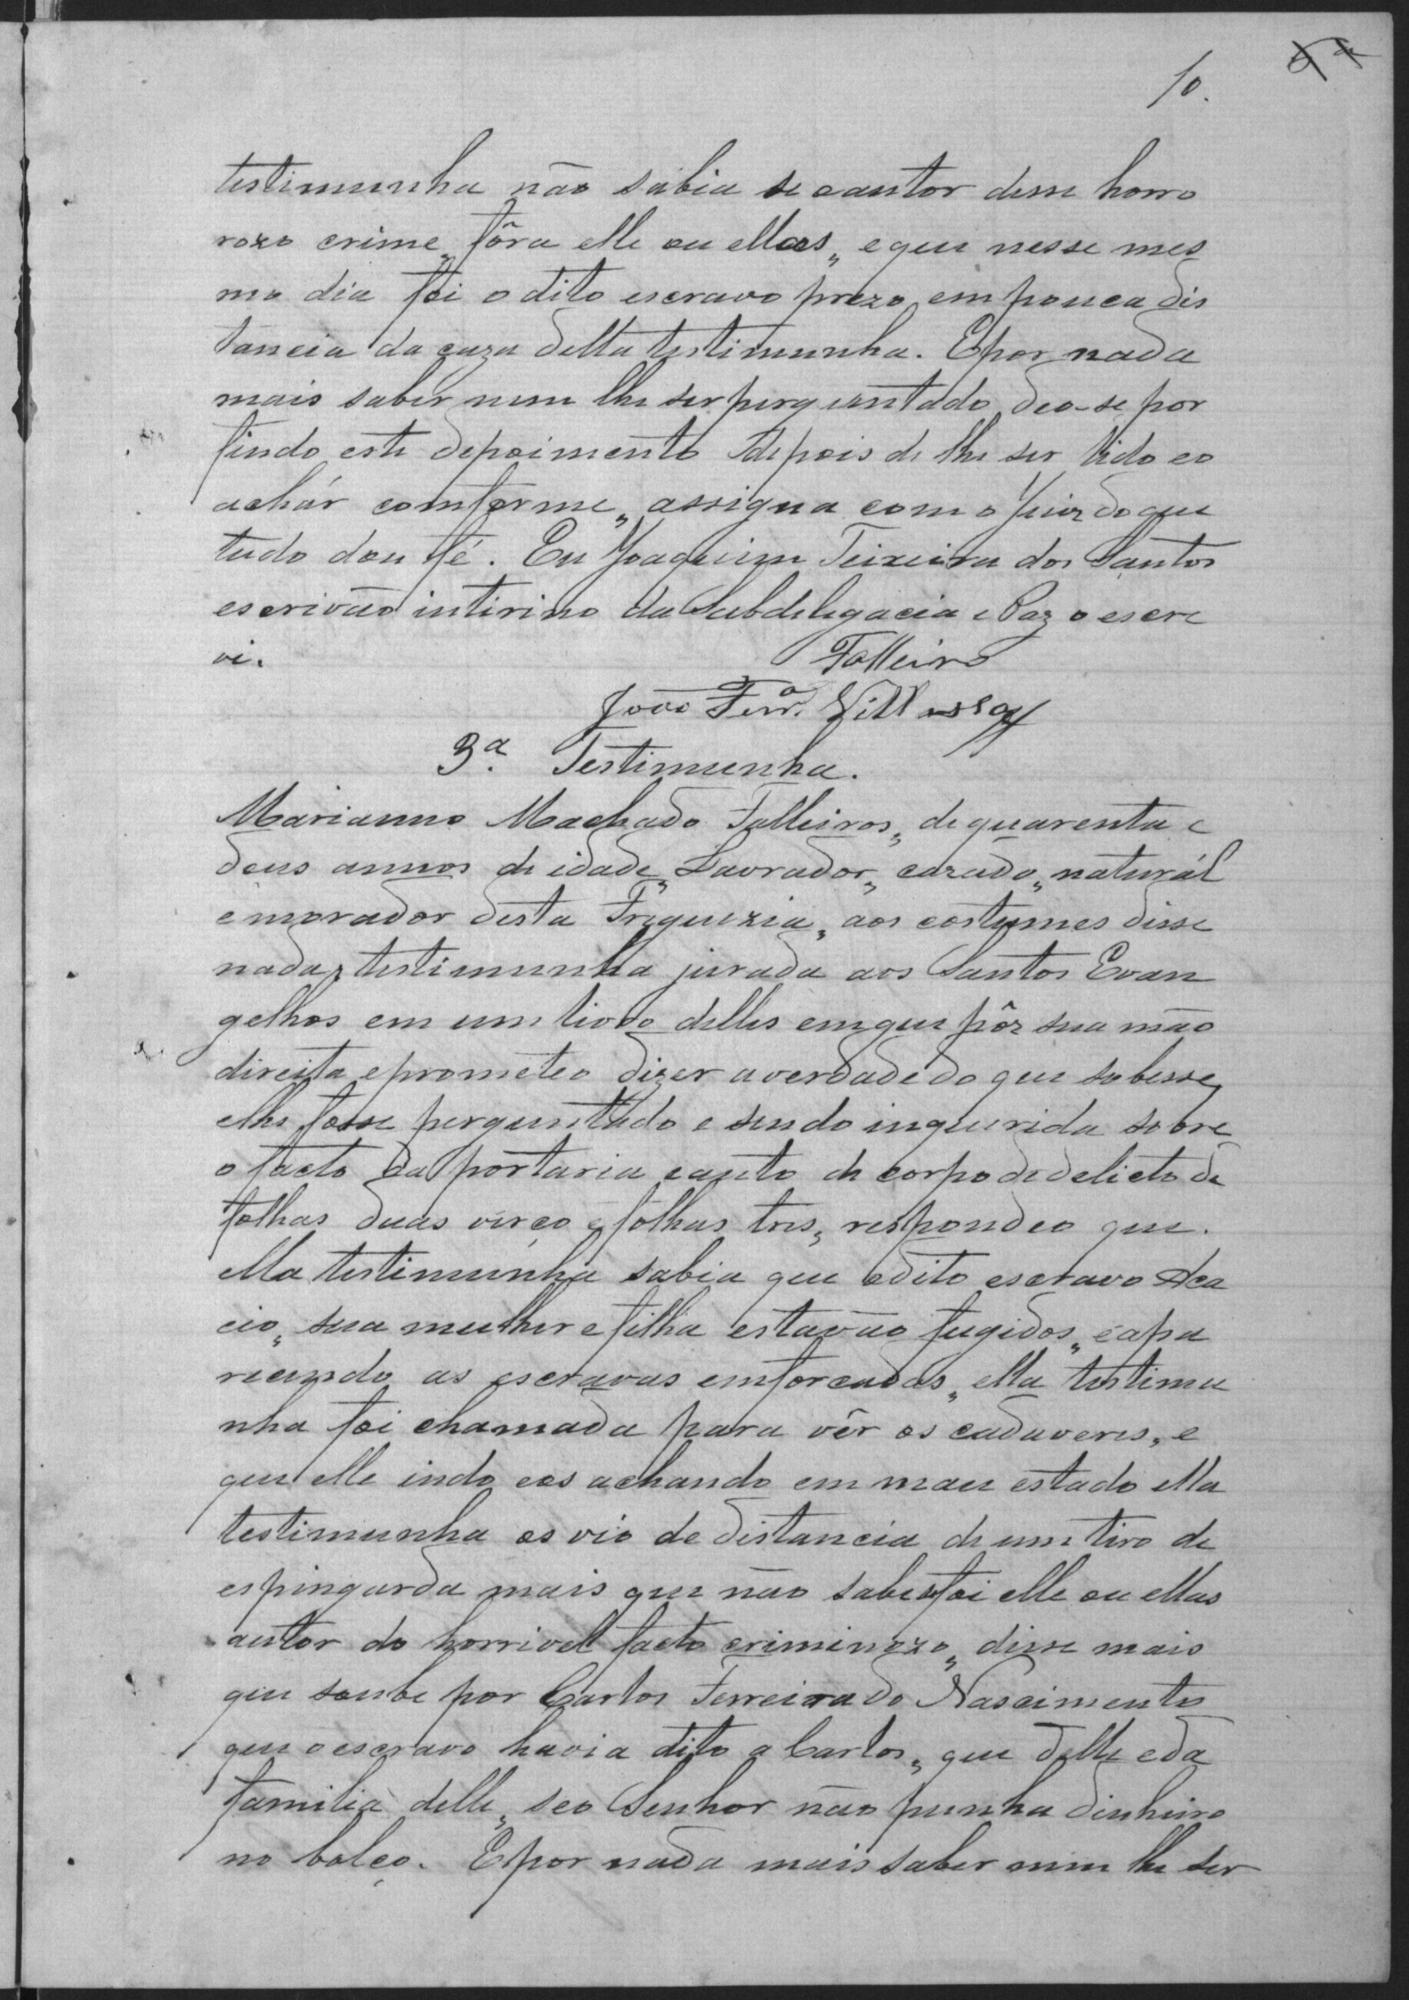 10.
testimunha não sabia se o autor desse horro
rozo crime„ fôra elle ou ellas„ e que nesse mes
mo dia foi o dito escravo prezo em pouca dis
tancia da caza desta testimunha. E por nada
mais saber nem lhe ser perguntado deo-se por
findo este depoimento depois de lhe ser lido e o
achár comforme„ assigna com o Juiz do que
tudo dou fé. Eu Joaquim Teixeira dos Santos
escrivão intirino da Subdelegacia e Paz o escre
vi. Falleiro
João Ferr.ª Villassa
3ª. Testimunha.
Marianno Machado Falleiros„ de quarenta e
deus annos de idade„ Lavrador„ cazado„ naturál
e morador desta Freguezia„ aos costumes disse
nada„ testimunha jurada aos Santos Evan
gelhos em um livro delles em que pôz sua mão
direita e prometeo dizer a verdade do que sobesse
e lhe fosse perguntado e sendo inquerida sobre
o facto da portaria e auto de corpo de delicto de
folhas duas verço e folhas tres„ respondeo que.
ella testimunha sabia que o dito escravo Aca
cio„ sua mulher e filha estavão fugidos„ e apa
recendo as escravas emforcadas„ ella testimu
nha foi chamada para vêr os cadaveres, e
que elle indo e os achando em mau estado ella
testimunha os vio de distancia de um tiro de
espingarda mais que não sabe se foi elle ou ellas
autor do horrivel facto criminozo„ disse mais
que soube por Carlos Ferreira do Nascimento
que o escravo havia dito a Carlos„ que delle e da
familia delle„ seo Senhor não punha dinheiro
no bolço. E por nada mais saber nem lhe ser